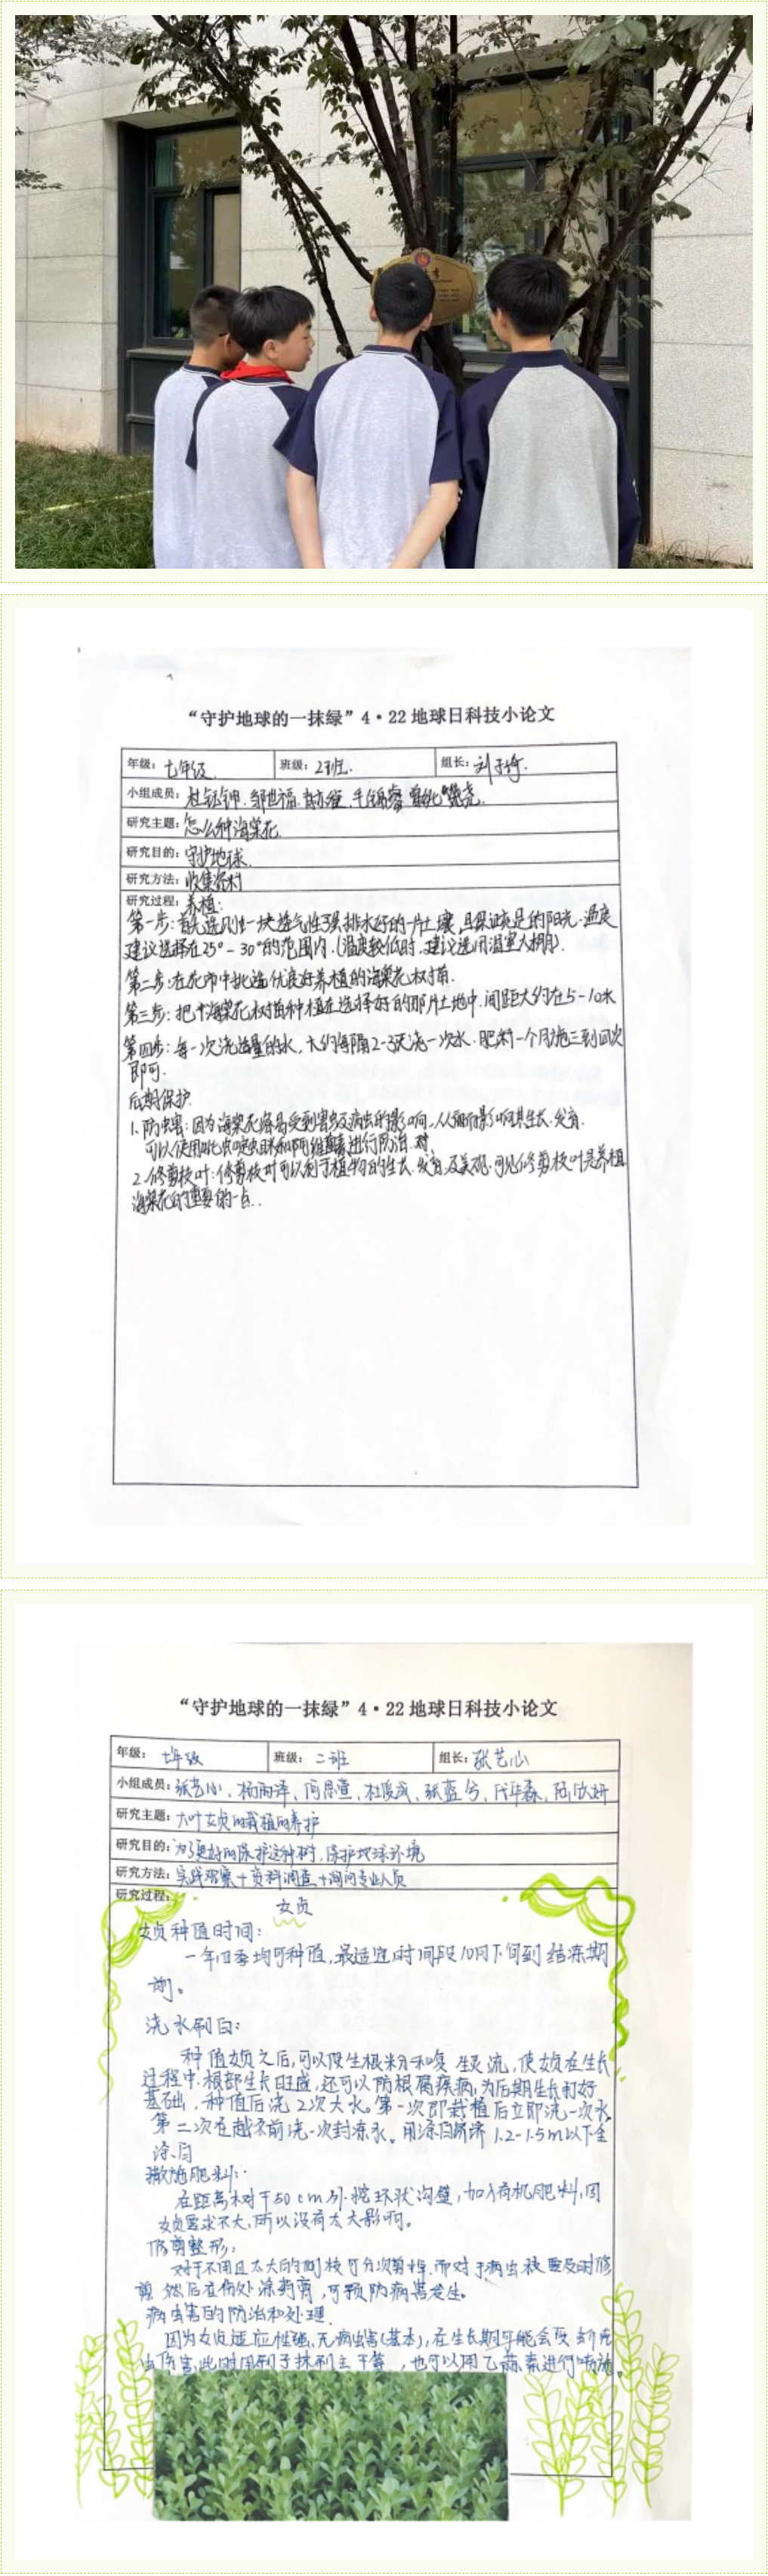 “守护地球的一抹绿”4·22地球日科技小论文
年级：七年级 班级：2班 组长：刘子
小组成员：
研究主题：怎么种海棠花
研究目的：守护地球.
研究方法：收集资料
研究过程：养植：
第一步：首先选则一块透气性强排水好的一片土壤，且保证充足的阳光.温度
建议选择在25°-30°的范围内.(温度较低时,建议选用温室大棚).
第二步：在花市中挑选优良好养植的海棠花树苗.
第三步：把海棠花树苗种植在选择好的那片土地中.间距大约在5-10米
第四步：每一次浇适量的水，大约每隔2-3天浇一次水.肥料一个月施三到四次
即可.
后期保护.
1.防虫害：因为海棠花容易受到害虫及病虫的影响.从而影响其生长.发育.
可以使用吡虫啉和阿维菌素进行防治.
2.修剪枝叶：修剪枝叶可以利于植物的生长.发育.及美观.可见修剪枝叶是养植
海棠花的重要的一点..
“守护地球的一抹绿”4·22地球日科技小论文
年级：七年级 班级：二班 组长：张艺心
小组成员：张艺心、杨雨泽、张蓝兮、
研究主题：大叶女贞的栽植的养护
研究目的：为了更好的保护这种树，保护地球环境
研究方法：实践观察+资料调查+询问专业人员
研究过程：
女贞
女贞种值时间：
一年四季均可种值，最适宜时间段10月下旬到结冻期
前。
浇水刷白：
种值女贞之后，可以使生根粉和 灵 流，使女贞在生长
过程中，根部生长旺盛，还可以防根腐疾病，为后期生长打好
基础，种值后浇2次大水。第一次即栽植后立即浇一次水，
第二次在越冬前浇一次封冻水。用涂白剂将1.2-1.5m以下全
涂白
撒施肥料：
在距离树干50cm外.挖环状沟壑，加入有机肥料，因
女贞要求不大，所以没有太大影响。
修剪整形：
对于不用且太大的侧枝可分次剪掉.而对于病虫枝要及时修
剪.然后在伤处涂药膏，可预防病害发生。
病虫害的防治和处理.
因为女贞适应性强、无病虫害(基本)，在生长期可能会受到
虫伤害.此时用刷子抹刷主干等，也可以用乙蒜素进行喷施。